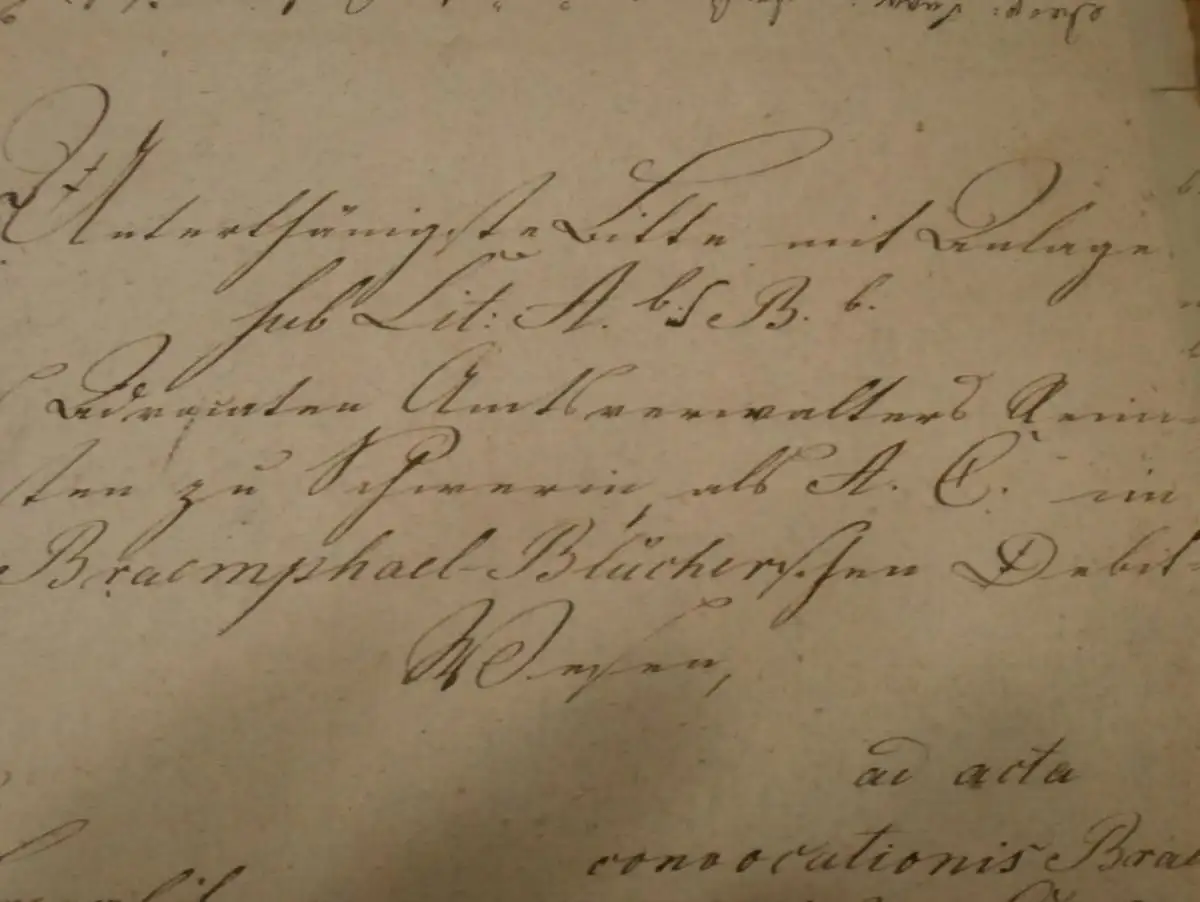 Unterthänigste Bitte mit Anlage
sub Lit: A. b.s B. b.
Advocaten Amtsverwalters
sten zu Schwerin, als A. C. im
Braemphael-Blücherschen Debit-
Wesen,
ad acta
convocationis Brae